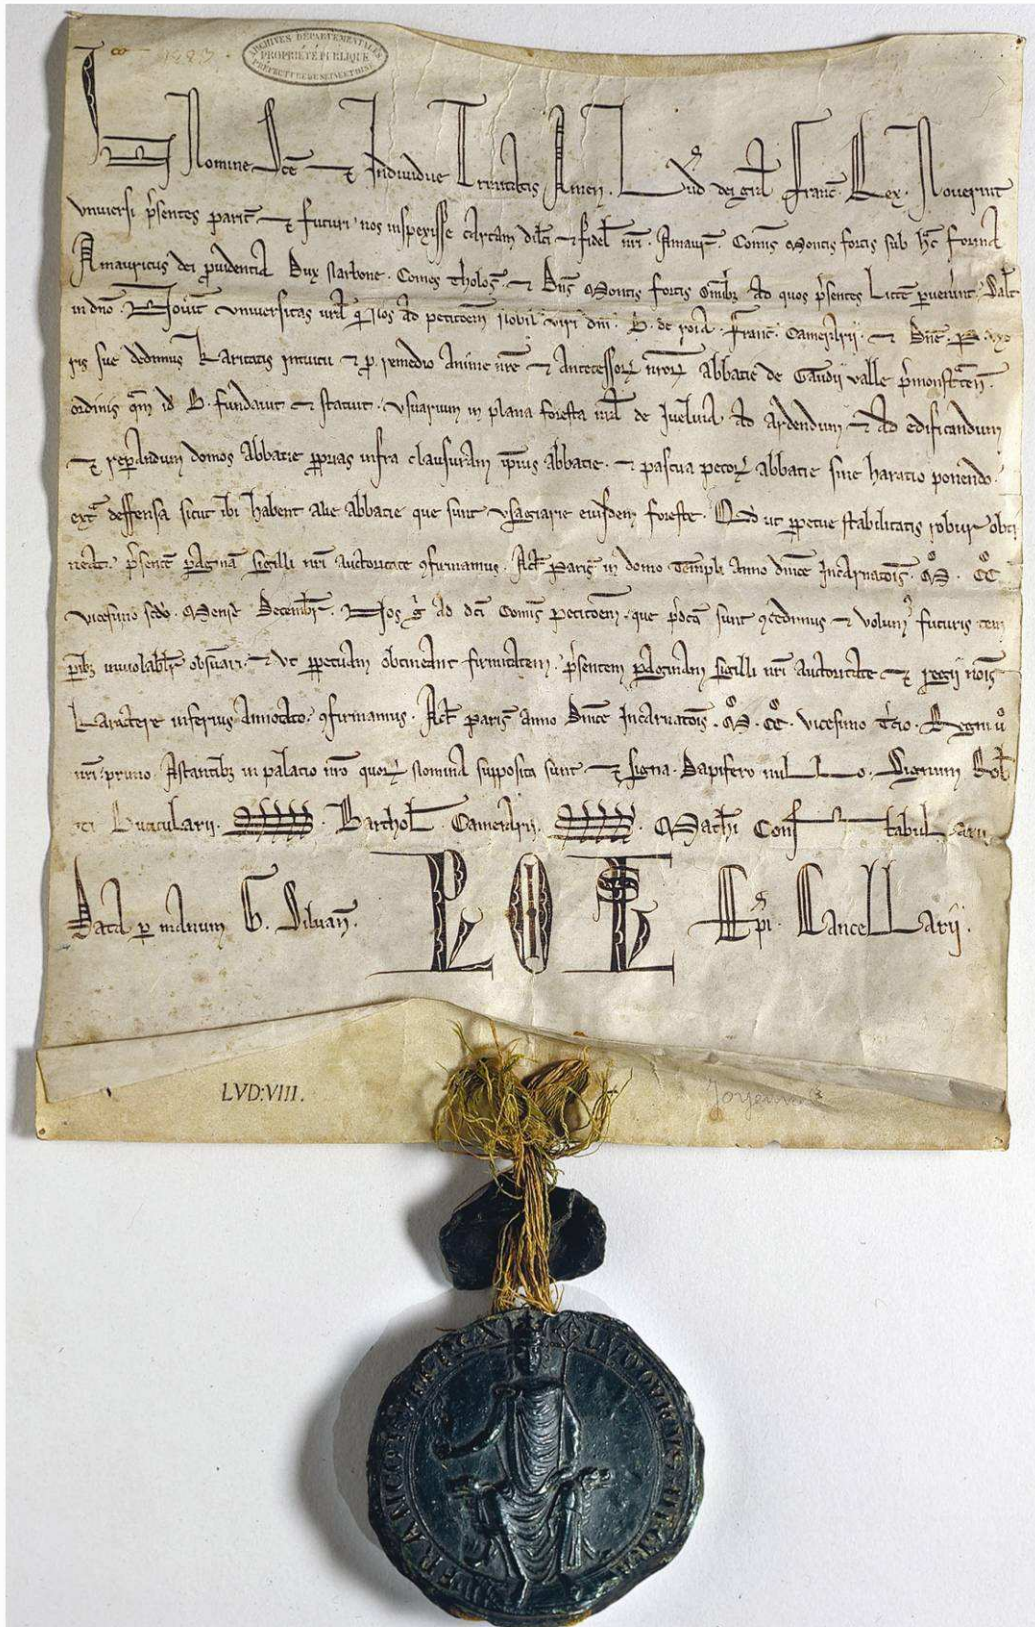 1223
ARCHIVES DÉPARTEMENTALES
PROPRIÉTÉ PUBLIQUE
PRÉFECTURE DE SEINE ET OISE
In Nomine Sce & Individue Trinitatis Amen. Lud dei gra Franc Rex. Noverint
universi psentes parit & futuri nos inspexisse cartam dilci & fidel nri. Amaur. Comis Montis fortis sub hac forma
Amauricus dei providentia Dux Narbone. Comes Tholos. & Dns Montis fortis Omibz ad quos psentes Littere pvenerint. Salt
in dno. Noverit universitas vra q nos ad peticoem nobil viri dni. B. de roia. Franc. Camerarii. & Dne. P. uxo
ris sue dedimus karitatis intuitu & p remedio anime nre & Antecessorz nrorz abbatie de Gaudii valle pmonstraten.
ordinis qm id B. fundavit & statuit. usuarium in plana foresta nra de Iuelina ad ardendum & ad edificandum
& repandum domos abbatie pprias infra clausuram ipius abbatie. & pascua pecorz abbatie sine haratio ponendo.
extra deffensa sicut ibi habent alie abbatie que sunt usagiarie eiusdem foreste. Quod ut ppetue stabilitatis robur obti
neat. psente paginam sigilli nri auctoritate gfirmamus. Act Paris in domo Templi anno dnice Incarnatois. M. CC
vicesimo scdo. Mense Decembr. Nos g ad dci Comis peticoem. que pdca sunt gcedimus & volum futuris tem
pibz inviolabilr observari. & ut ppetuam obtineant firmitatem. psentem paginam sigilli nri auctoritate & regii nois
karactere inferius annotato. gfirmamus. Act Paris anno Dnice Incarnatois. M. CC. vicesimo tcio. Regni vo
nri. primo. Astantibz in palacio nro quorz nomina supposita sunt & signa. Dapifero nullo. Signum Rob
ti Buticularii. Barthol. Camerarii. Mathi Constabularii
Data p manum G. Silvan. Epi. Cancellarii.
LVD:VIII.